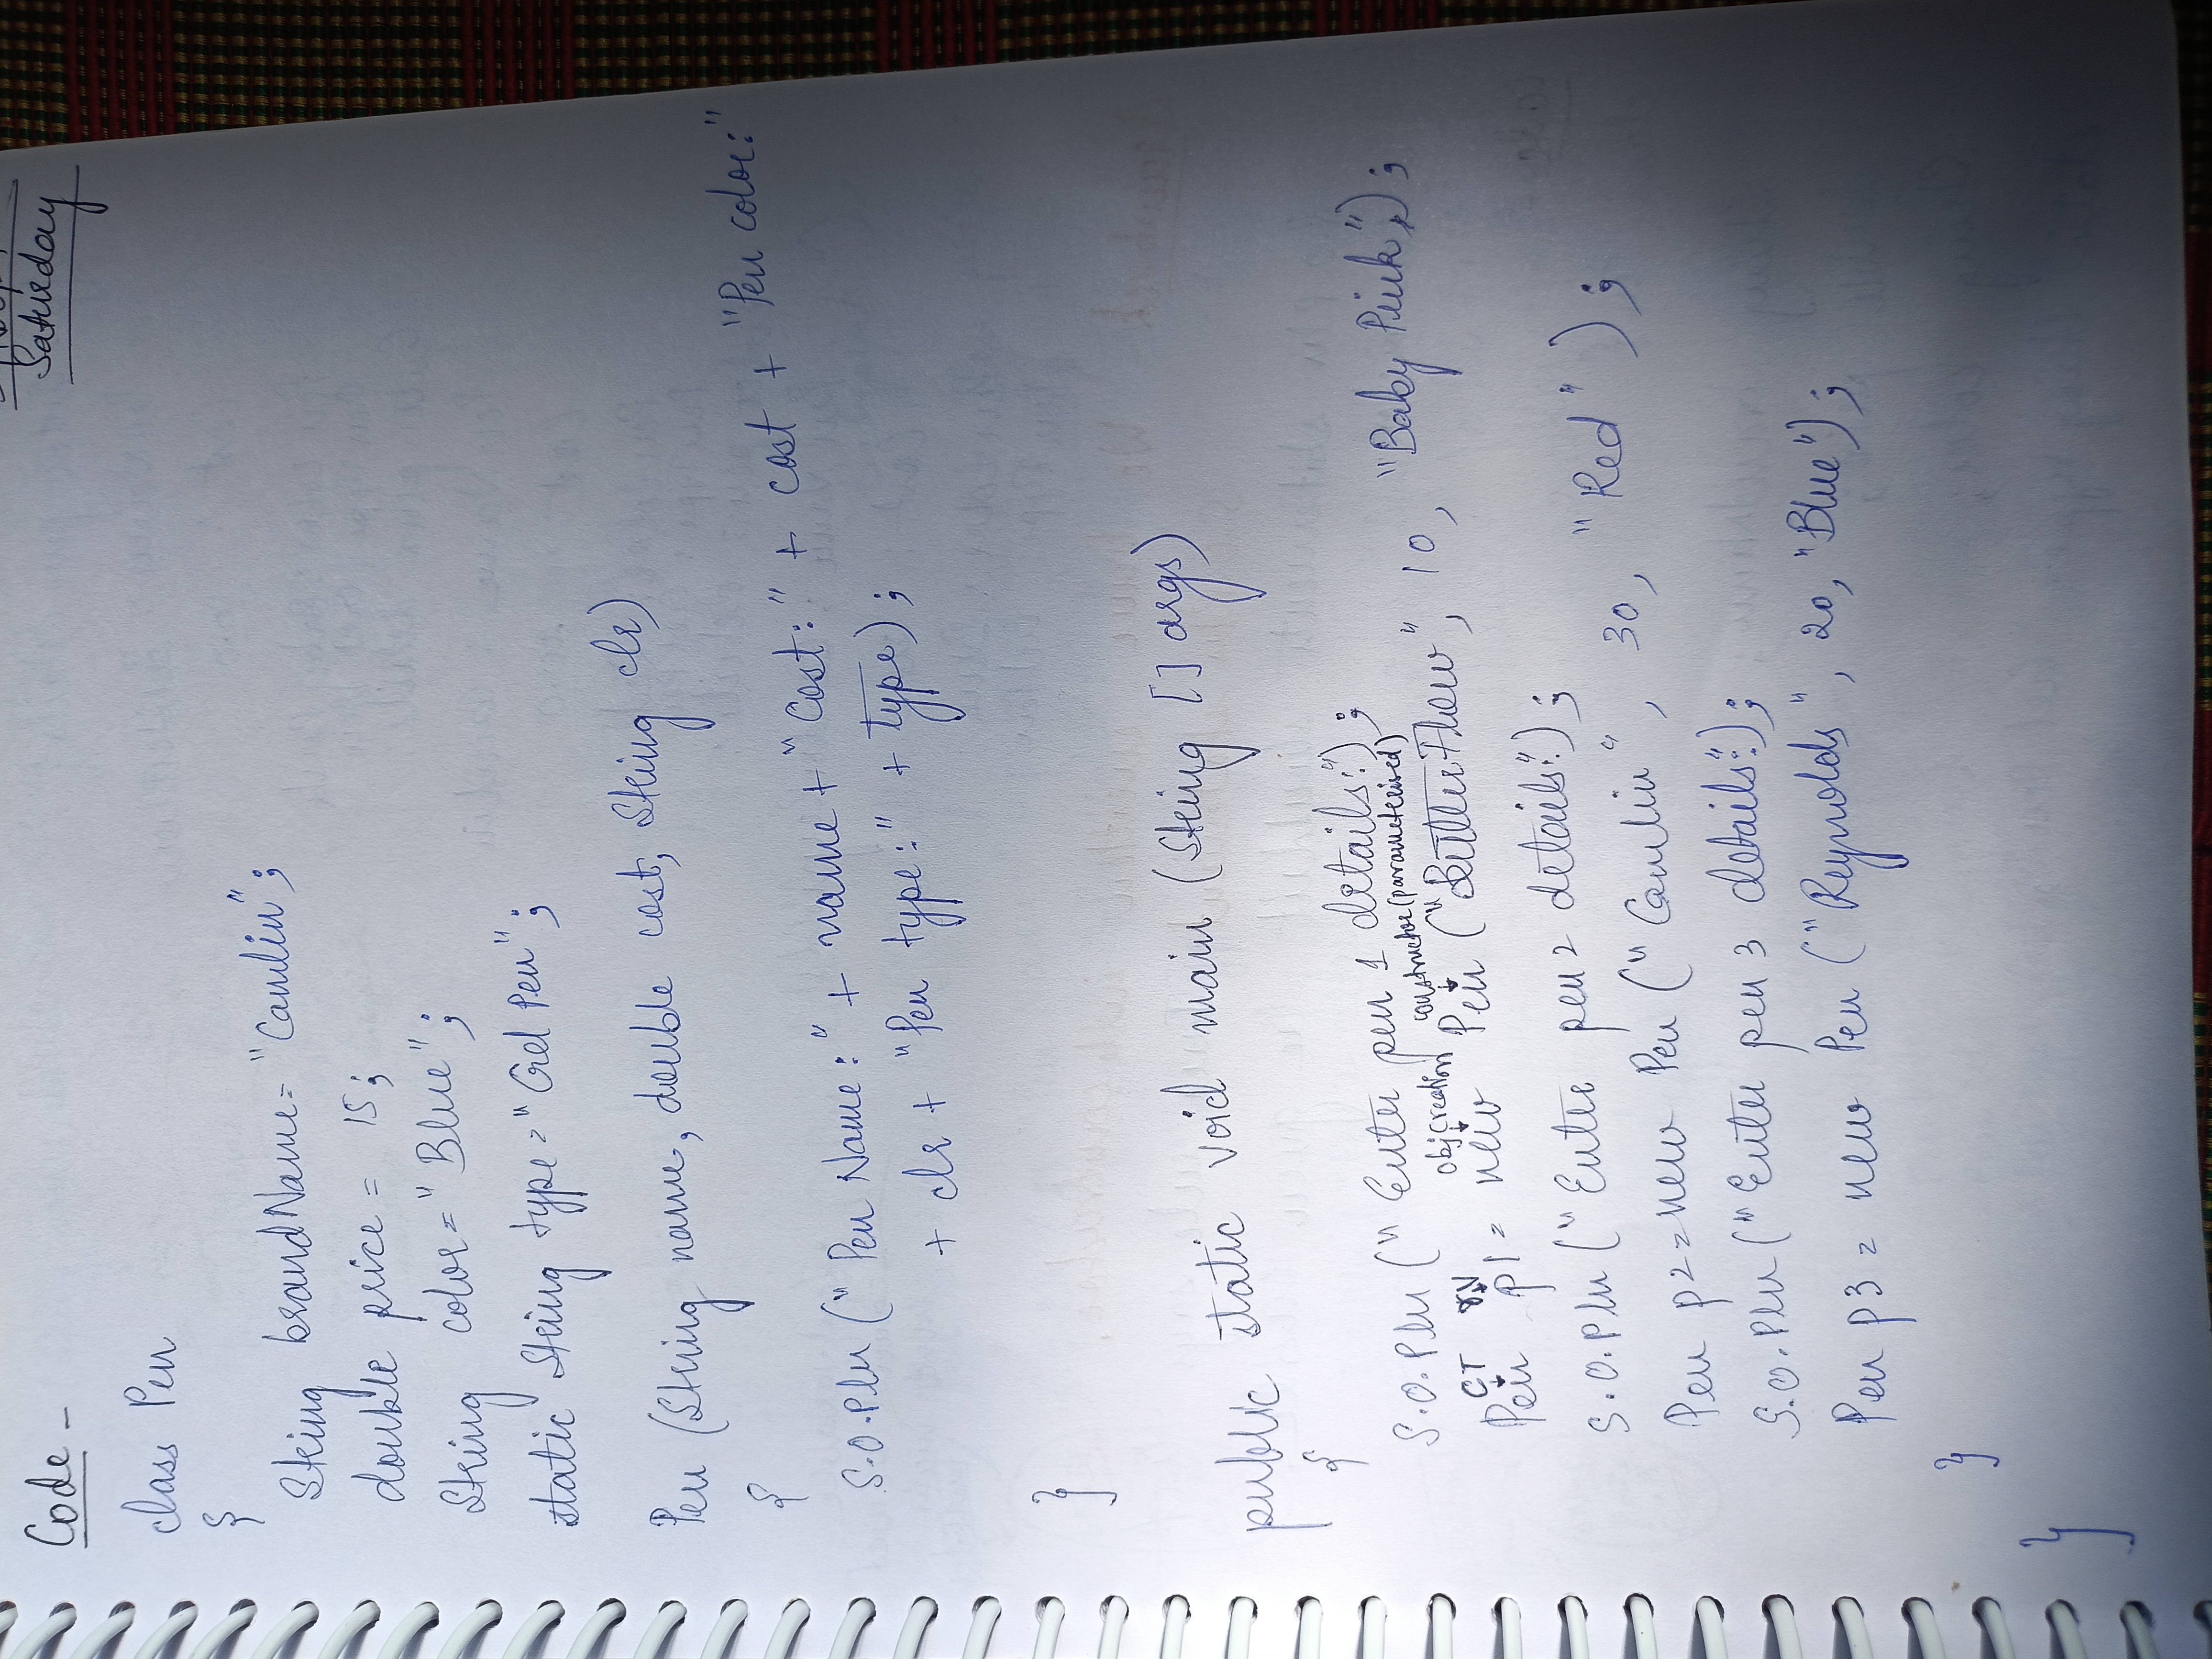 Saturday
Code -
class Pen
{
String brandName= "Camlin";
double price = 15;
String color= "Blue";
static String type= "Gel Pen";
Pen (String name, double cost, String clr)
{
S.O.Pln (" Pen Name:" + name + "Cost:" + cost + "Pen color:"
+ clr + "Pen type:" + type);
}
public static void main (String [] args)
{
S.O.Pln (" Enter pen 1 details:");
CT rV objcreation constructor(parameterised)
Pen p1= new Pen ("ButterFlow", 10, "Baby Pink");
S.O.Pln ("Enter pen 2 details:");
Pen p2=new Pen ("Camlin", 30, "Red" );
S.O.Pln ("Enter pen 3 details:");
Pen p3 = new Pen ("Reynolds", 20, "Blue");
}
}